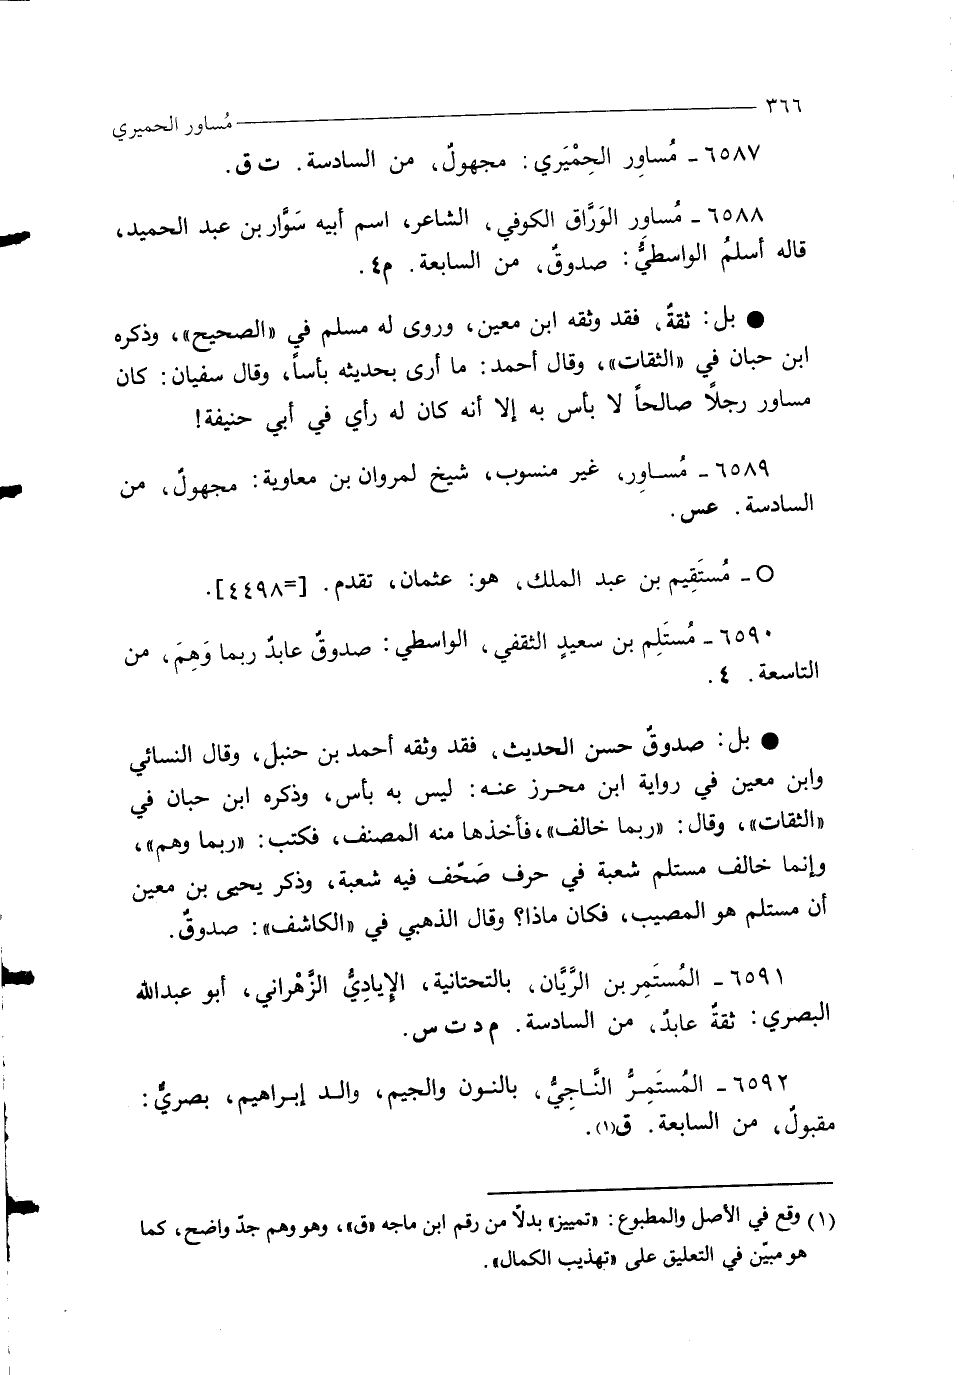 ٣٦٦
مُساور الحميري
٦٥٨٧ ـ مُساوِر الحِمْيَري: مجهولٌ، من السادسة. ت ق.
٦٥٨٨ ـ مُساوِر الوَرَّاق الكوفي، الشاعر، اسم أبيه سَوَّار بن عبد الحميد،
قاله أسلمُ الواسطيُّ: صدوقٌ، من السابعة. م٤.
● بل: ثقةٌ، فقد وثقه ابن معين، وروى له مسلم في «الصحيح»، وذكره
ابن حبان في «الثقات»، وقال أحمد: ما أرى بحديثه بأساً، وقال سفيان: كان
مساور رجلاً صالحاً لا بأس به إلا أنه كان له رأي في أبي حنيفة!
٦٥٨٩ ـ مُســاوِر، غير منسوب، شيخ لمروان بن معاوية: مجهولٌ، من
السادسة. عس.
○ ـ مُستَقِيم بن عبد الملك، هو: عثمان، تقدم. [=٤٤٩٨].
٦٥٩٠ ـ مُستَلِم بن سعيدٍ الثقفي، الواسطي: صدوقٌ عابدٌ ربما وَهِمَ، من
التاسعة. ٤.
● بل: صدوقٌ حسن الحديث، فقد وثقه أحمد بن حنبل، وقال النسائي
وابن معين في رواية ابن محـرز عنـه: ليس به بأس، وذكره ابن حبان في
«الثقات»، وقال: «ربما خالف»،فأخذها منه المصنف، فكتب: «ربما وهم»،
وإنما خالف مستلم شعبة في حرف صَحّف فيه شعبة، وذكر يحيى بن معين
أن مستلم هو المصيب، فكان ماذا؟ وقال الذهبي في «الكاشف»: صدوقٌ.
٦٥٩١ ـ المُستَمِر بن الرَّيَّان، بالتحتانية، الإيادِيُّ الزَّهْراني، أبو عبدالله
البصري: ثقةٌ عابدٌ، من السادسة. م د ت س.
٦٥٩٢ ـ المُستَمِـرُّ النَّـاجِيُّ، بالنـون والجيم، والـد إبـراهيم، بصريٌّ:
مقبولٌ، من السابعة. ق(١).
(١) وقع في الأصل والمطبوع: «تمييز» بدلاً من رقم ابن ماجه «ق»، وهو وهم جدّ واضح، كما
هو مبيّن في التعليق على «تهذيب الكمال».